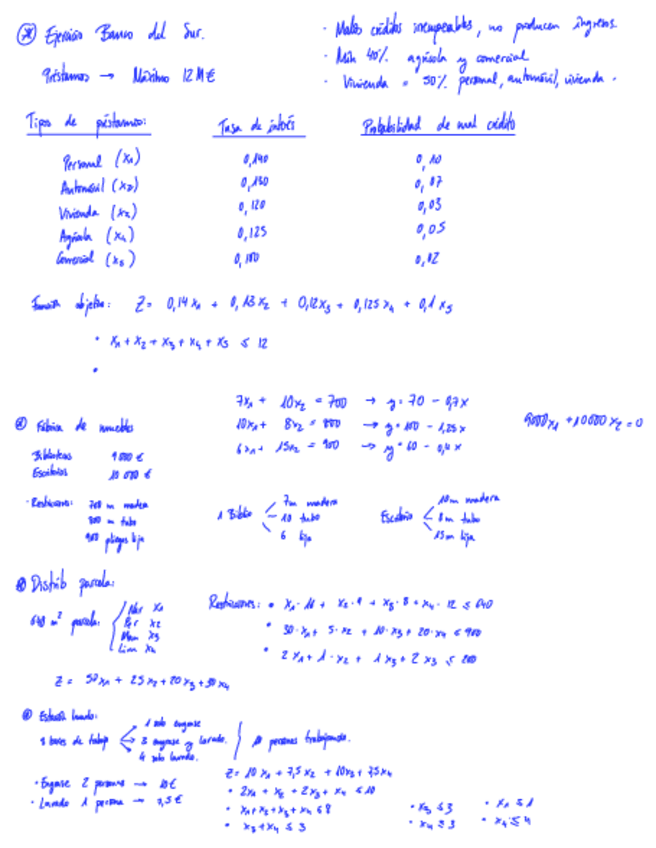 Ejercicio Banco del Sur.
Préstamos → Máximo 12 M€
· Malos créditos irrecuperables, no producen ingresos.
· Mín 40% agrícola y comercial
· Vivienda = 50% personal, automóvil, vivienda.
Tipos de préstamos: Tasa de interés Probabilidad de mal crédito
Personal (x₁) 0,140 0,10
Automóvil (x₂) 0,130 0,07
Vivienda 0,120 0,03
Agrícola (x₄) 0,125 0,05
Comercial (x₅) 0,100 0,02
Función objetivo: Z = 0,14x₁ + 0,13x₂ + 0,12x₃ + 0,125x₄ + 0,1x₅
· x₁ + x₂ + x₃ + x₄ + x₅ ≤ 12
7x₁ + 10x₂ = 700 → y = 70 - 0,7x
10x₁ + 8x₂ = 800 → y = 100 - 1,25x
6x₁ + 15x₂ = 900 → y = 60 - 0,4x
9000x₁ + 10000x₂ = 0
Fábrica de muebles
Bibliotecas 9 000 €
Escritorios 10 000 €
· Restricciones: 700 m madera
800 m tubo
900 pliegos lija
1 Biblio 7m madera
10 tubo
6 lija
Escritorio 10m madera
8m tubo
15m lija
Distrib parcela:
640 m² parcela: x₁
x₂
x₃
x₄
Restricciones: · x₁·11 + x₂·9 + x₃·8 + x₄·12 ≤ 640
· 30·x₁ + 5·x₂ + 10·x₃ + 20·x₄ ≤ 900
· 2x₁ + 1·x₂ + 1x₃ + 2x₃ ≤ 200
Z = 50x₁ + 25x₂ + 20x₃ + 30x₄
lavado:
8 1 solo engrase
3 engrase y lavado.
4 solo lavado.
personas trabajando.
· Engrase 2 personas → 10€
· Lavado 1 persona → 7,5€
Z = 10x₁ + 7,5x₂ + 10x₃ + 7,5x₄
· 2x₁ + x₂ + 2x₃ + x₄ ≤ 10
· x₁ + x₂ + x₃ + x₄ ≤ 8
· x₃ + x₄ ≤ 3
· x₃ ≤ 3 · x₁ ≤ 1
· x₄ ≤ 3 · x₄ ≤ 4